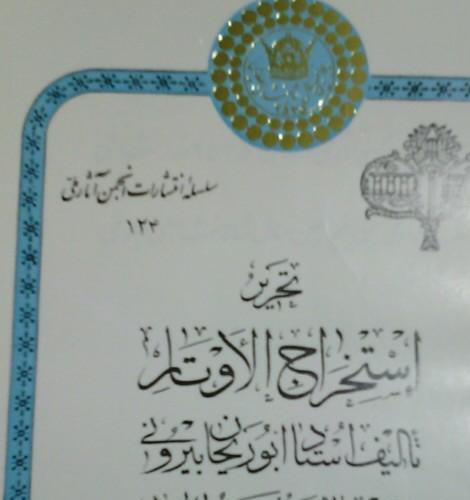 سلسلهٔ انتشارات انجمن آثار ملی
۱۲۴
تحریر
إستخراج الأوتار
تألیف استاد ابوریحان بیرونی